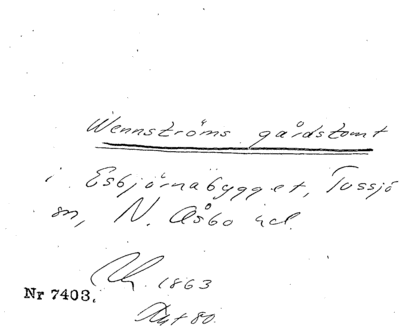 Wennströms gårdstomt
i Esbjörnabygget, Tossjö
sn, N. Åsbo hd.
1863
Nr 7403.